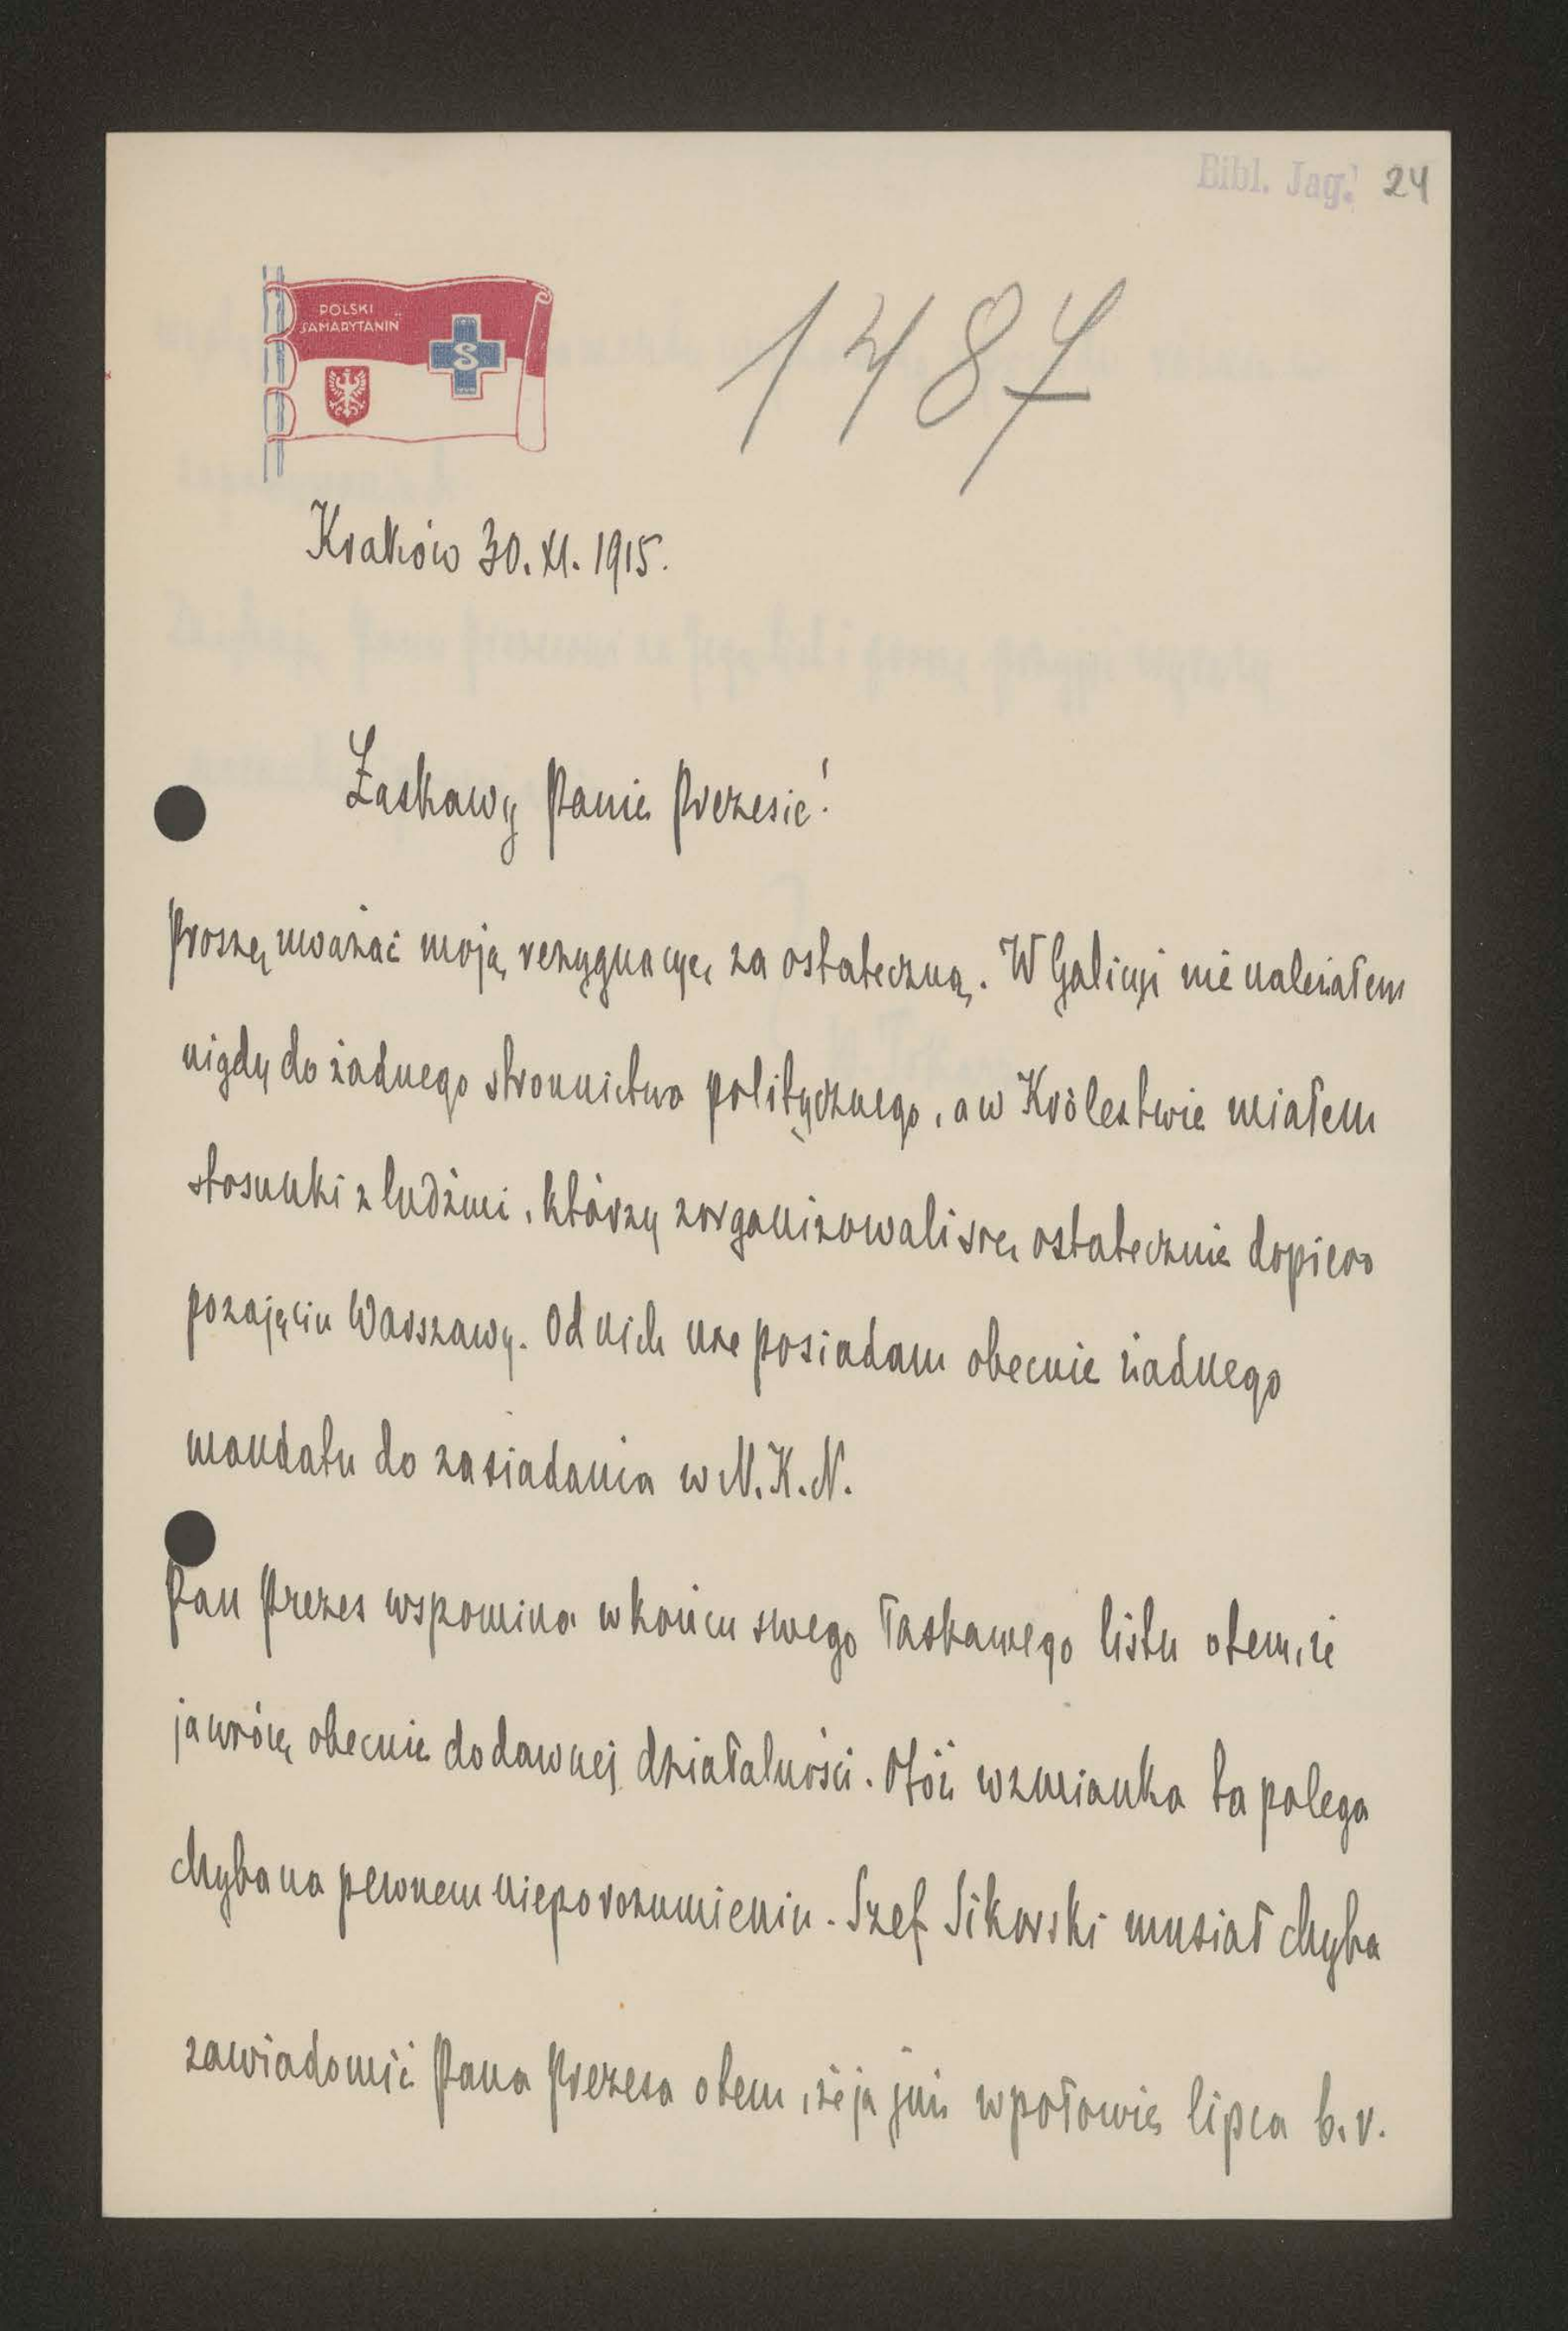 Bibl. Jag. 24
POLSKI
SAMARYTANIN
1487
Kraków 30. XI. 1915.
Łaskawy Panie Prezesie!
Proszę uważać moją rezygnacyę za ostateczną. W Galicyi nie należałem
nigdy do żadnego stronnictwa politycznego, a w Królestwie miałem
stosunki z ludźmi, którzy zorganizowali się ostatecznie dopiero
po zajęciu Warszawy. Od nich nie posiadam obecnie żadnego
mandatu do zasiadania w N.K.N.
Pan Prezes wspomina w końcu swego łaskawego listu o tem, że
ja wrócę obecnie do dawnej działalności. Otóż wzmianka ta polega
chyba na pewnem nieporozumieniu. Szef Sikorski musiał chyba
zawiadomić Pana Prezesa o tem, że ja już w połowie lipca b.r.